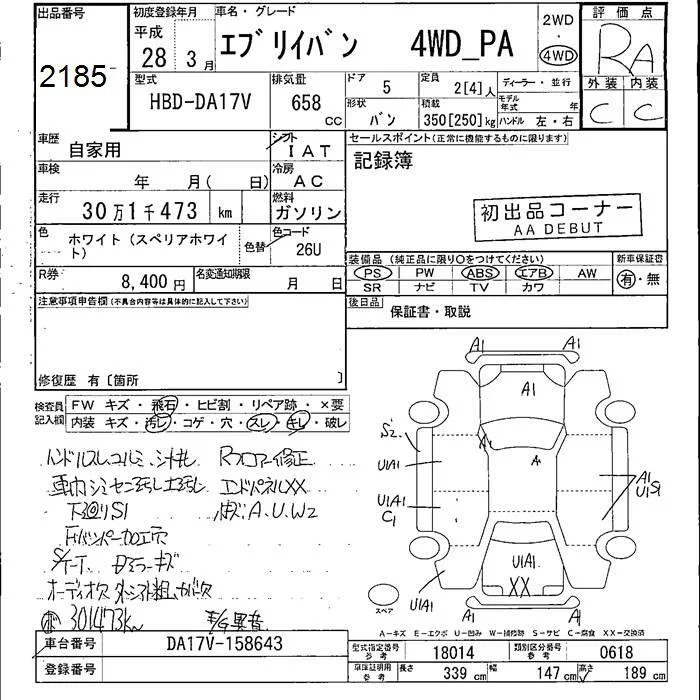 出品番号
2185
初度登録年月
平成
28年 3月
車名・グレード
エブリイバン 4WD_PA
2WD
4WD
評価点
RA
外装 内装
C C
型式
HBD-DA17V
排気量
658
CC
ドア
5
定員
2[4]人
ディーラー・並行
形状
バン
積載
350[250]kg
モデル年式 年
ハンドル 左・右
車歴
自家用
シフト
IAT
セールスポイント(正常に機能するものに限ります)
記録簿
車検
年 月( 日)
冷房
AC
走行
30万1千473 km
燃料
ガソリン
初出品コーナー
AA DEBUT
色
ホワイト(スペリアホワイト)
色替
色コード
26U
装備品(純正品に限り○をつけてください)
新車保証書
PS PW ABS エアB AW
有・無
SR ナビ TV カワ
R券
8,400円
名変通知期限
月 日
後日品
保証書・取説
注意事項申告欄(不具合内容等は具体的に記入して下さい)
修復歴 有〔箇所 〕
検査員記入欄
FW キズ・飛石・ヒビ割・リペア跡・×要
内装 キズ・汚レ・コゲ・穴・スレ・キレ・破レ
ハンドルスレ
Rフロアー修正
エンドパネルXX
A.U.W2
下廻りS1
301473km
E/G異音
A1 A1
A1
S2
A1
A
U1A1
A1
U1S1
U1A1
C1
U1A1
XX
U1A1
A1 A1
スペア
A-キズ E-エクボ U-凹み W-補修跡 S-サビ C-腐食 XX-交換済
車台番号
DA17V-158643
登録番号
型式指定番号
参考
18014
類別区分番号
参考
0618
車庫証明用
参考
長さ
339 cm
幅
147 cm
高さ
189 cm